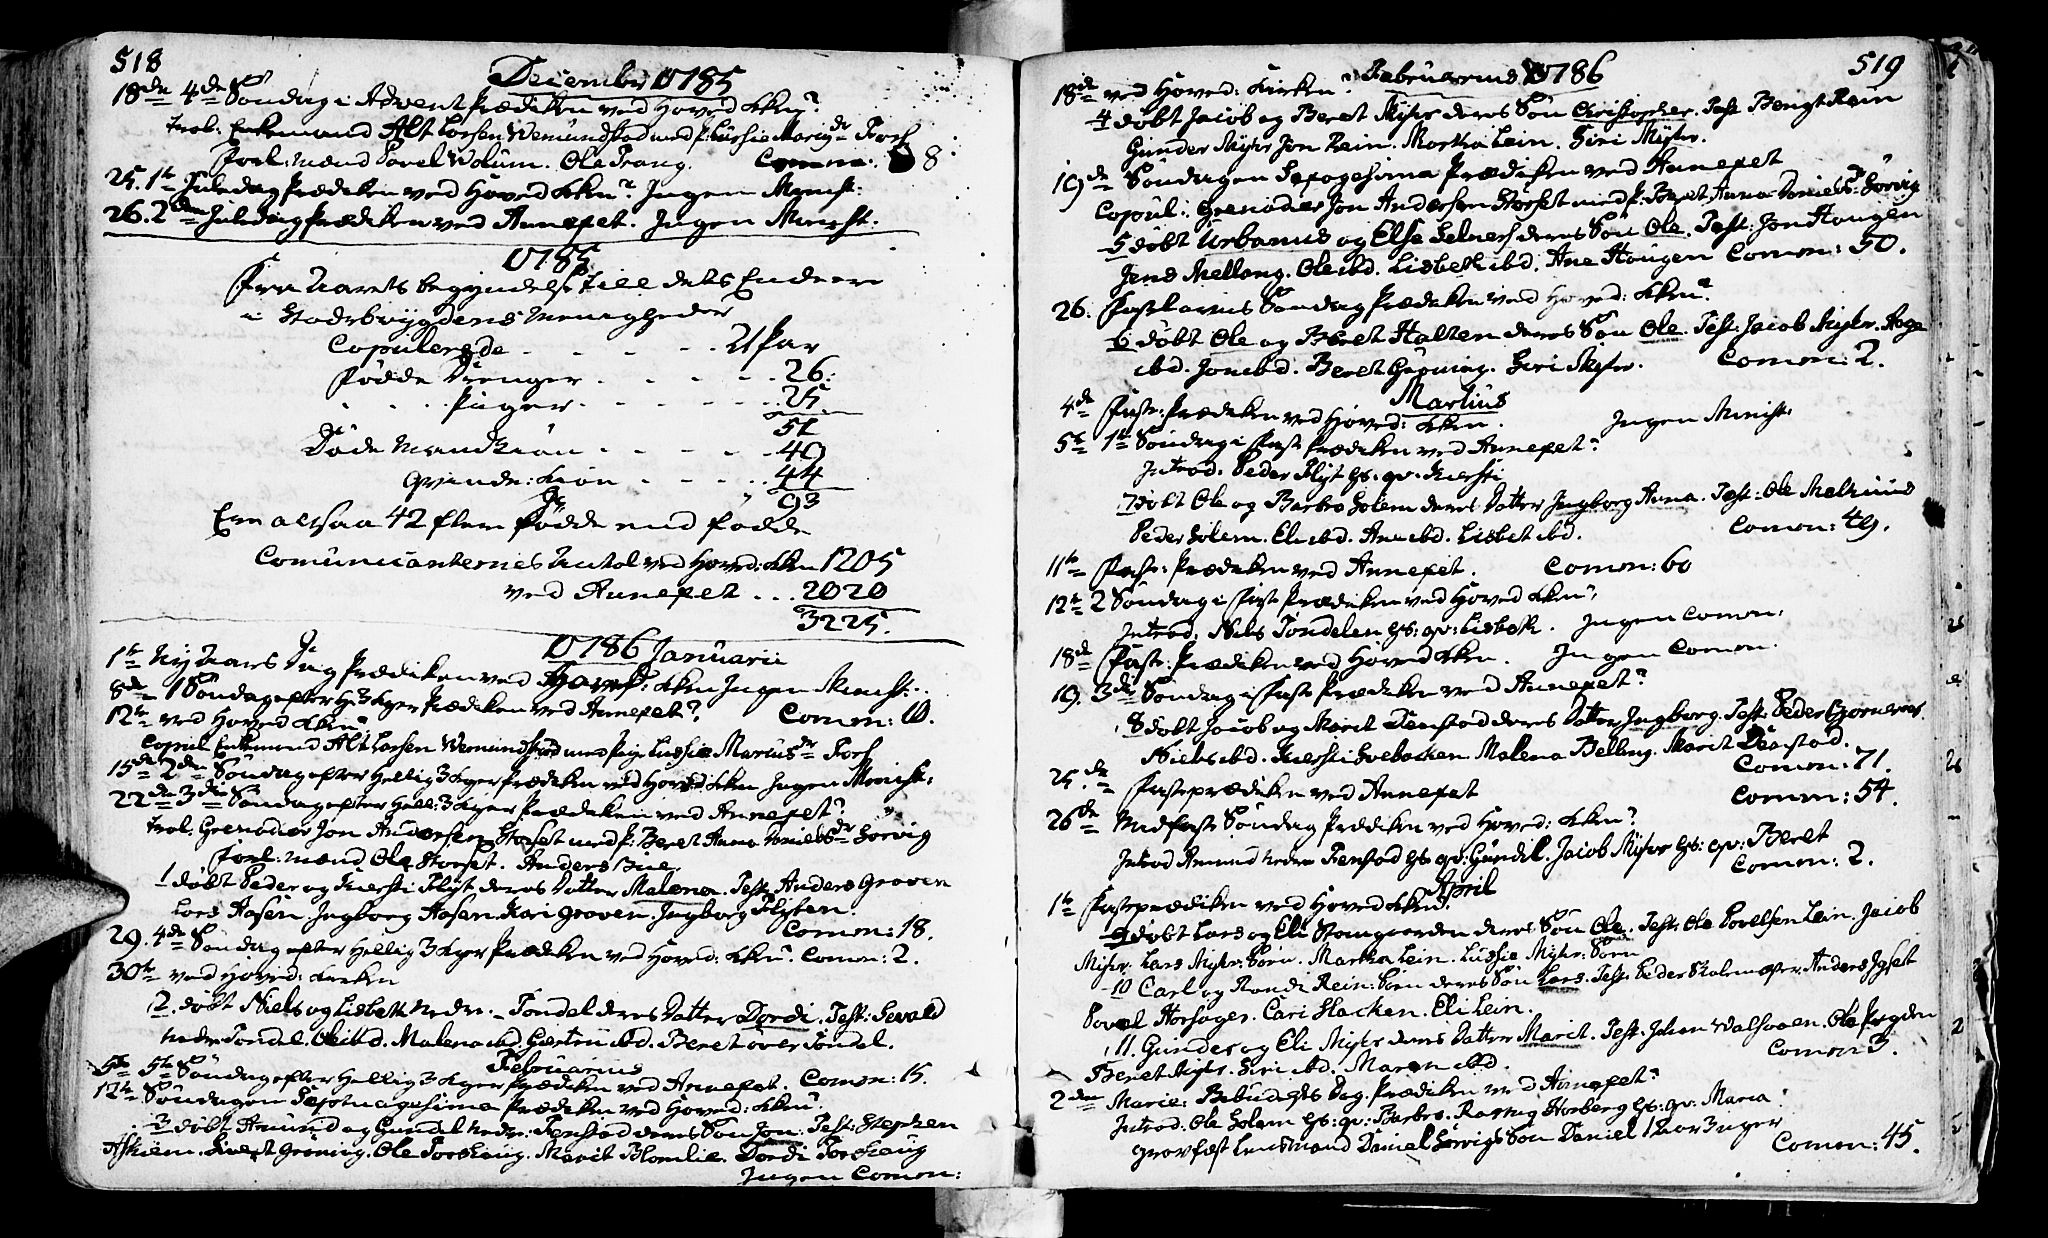 518
December 1785
18de 4de Søndag i Advent Prædiken ved Hoved Kken
Trol: Enkemand Alt Larsen Wemundstad med P: Lussie Mariæ dr Forf
Forl: mænd Povel Wolum. Ole Prang. Comm: 8
25. 1te Juledag Prædiken ved Hoved Kken. Ingen Minist:
26. 2den Juledag Prædiken ved Annexet. Ingen Minist.
1785
Fra Aarets begyndelse till dets Ende ere
i Stodsbøygdens Menigheder
Copulerede . . . . . 21 par
Fødde Drenger . . . . . 26.
. . . Piger . . . . . 25
51
Døde Mandkiøn . . . . . 49
Qvinde: Kiøn . . . . . 44
93
Ere altsaa 42 flere fødde end fødde
Comunicanternes Antal ved Hoved: Kken 1205
ved Annexet . . . 2020
3225.
1786 Januarii
1te Nyt Aars Dag Prædiken ved Hoved: Kken Ingen Minist:
8de 1 Søndag efter H: 3 Kger Prædiken ved Annexet. Comm: 10.
12te ved Hoved Kken
Copul Enkemand Alt Larsen Wemundstad med Pig. Lussie Mariæ dr Forf
15de 2den Søndag efter Hellig 3 Kger Prædiken ved Hoved Kken Ingen Minist:
22de 3die Søndag efter Hell: 3 Kger Prædiken ved Annexet.
Trol: Grenader Jon Andersen Storset med P: Beret Anna Daniels dr Sorvig
Forl: mænd Ole Storset. Anders
1 døbt Peder og Kiersti Flyt deres Datter Malena. Test: Anders Groven
Lars Aasen. Ingborg Aasen. Kari Groven. Ingborg Flyten.
Comm: 18.
29. 4de Søndag efter Hellig 3 Kger Prædiken ved Hoved: Kken. Comm: 2.
30te ved Hoved: Kirken
2. døbt Niels og Lisbeth Nedre-Tondel deres Datter Dordi. Test: Sevald
Nedre Tondel. Ole ibd. Malena ibd. Giertru ibd. Beret over Tondel.
Februarius
5te 5te Søndag efter Hellig 3 Kger Prædiken ved Annexet. Comm: 15.
12te Søndagen Septuagesima Prædiken ved Hoved: Kken
3 døbt Amund og Gundel Nedre: Fenstad deres Søn Jon. Test: Stephen
Askiem. Sivert Grøning. Ole Forskaug. Marit Blomlie. Dordi Forskaug
Ingen Comm:
519
Februarius 1786
18de ved Hoved: Kirken.
4 døbt Jacob og Beret Myhr deres Søn Christopher. Test Bengt Rein
Gunder Myhr Jon Rein. Marta Lein. Siri Myhr.
19de Søndagen Sexagesima Prædiken ved Annexet
Copul: Grenader Jon Andersen Storset med P: Beret Anna Daniels dr Sorvig
5 døbt Urbanus og Else Selnes deres Søn Ole. Test: Jon Haugen
Jens Melleng. Ole ibd. Lisbeth ibd. Ane Haugen Comm: 50.
26. Fastelavns Søndag Prædiken ved Hoved: Kken.
6 døbt Ole og Beret Halten deres Søn Ole. Test: Jacob Myhr. Aage
ibd. Jon ibd. Beret Grøning. Siri Myhr. Comm: 2.
Martius
4de Faste: Prædiken ved Hoved: Kken. Ingen Minist:
5te 1te Søndag i Faste Prædiken ved Annexet.
Introd. Peder Flyt hs: qv: Kiersti
7 døbt Ole og Barbro Solem deres Datter Ingborg Anna. Test: Ole Melhuus
Peder Solem. Eli ibd. Ane ibd. Lisbet ibd. Comm: 49.
11te Faste: Prædiken ved Annexet. Comm: 60
12te 2 Søndag i Faste Prædiken ved Hoved Kken.
Introd: Niels Tondelen hs: qv: Lisbeth. Ingen Comm:
18de Faste: Prædiken ved Hoved Kken. Ingen Comm.
19. 3die Søndag i Faste Prædiken ved Annexet.
8 døbt Jacob og Marit Denstad deres Datter Ingborg. Test: Peder
Niels ibd. Kiersti Lvebacken Malena Belleng. Marit Denstad.
Comm: 71.
25.de Fasteprædiken ved Annexet Comm: 54.
26de Midfaste Søndag Prædiken ved Hoved: Kken.
Introd Amund Nedre Fenstad hs. qv: Gundil. Jacob Myhr hs: qv: Beret
Comm: 2.
April
1te Fasteprædiken ved Hoved Kken.
9 døbt Lars og Eli Stangiorden deres Søn Ole. Test: Ole Povelsen Lein. Jacob
Myhr. Lars Myhr: Sørn. Marta Lein. Lussie Myhr: Sørn
10 Carl og Randi Rein: Sørn deres Søn Lars. Test: Peder Skolemester. Anders Ryset
Povel Horsager. Cari Hacken. Eli Lein.
11. Gunder og Eli Myhr deres Datter Marit. Test: Johan Walsaaen. Ole Prygden
Beret Myhr. Siri ibd. Maren ibd. Comm 3.
2den Mariæ: Bebudelses Dag. Prædiken ved Annexet.
Introd: Ole Solem hs: qv: Barbro. Rasmus Storberg hs: qv: Maria.
Gravfæst Lensmand Daniel Sørvigs Søn Daniel 1 Aar 3 uger
Comm: 45.